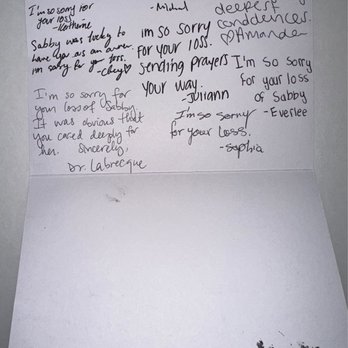 I'm so sorry for
your loss
-Katherine
-Michael
deepest
condolences.
♡Amanda
Sabby was lucky to
have you as an owner.
im sorry for your loss.
-Chery♡
im so sorry
for your loss.
sending prayers
your way.
-Juliann
I'm so sorry
for your loss
of Sabby
-Everlee
I'm so sorry for
your loss of Sabby.
It was obvious that
you cared deeply for
her. Sincerely,
Dr. Labrecque
I'm so sorry
for your loss.
-Sophia